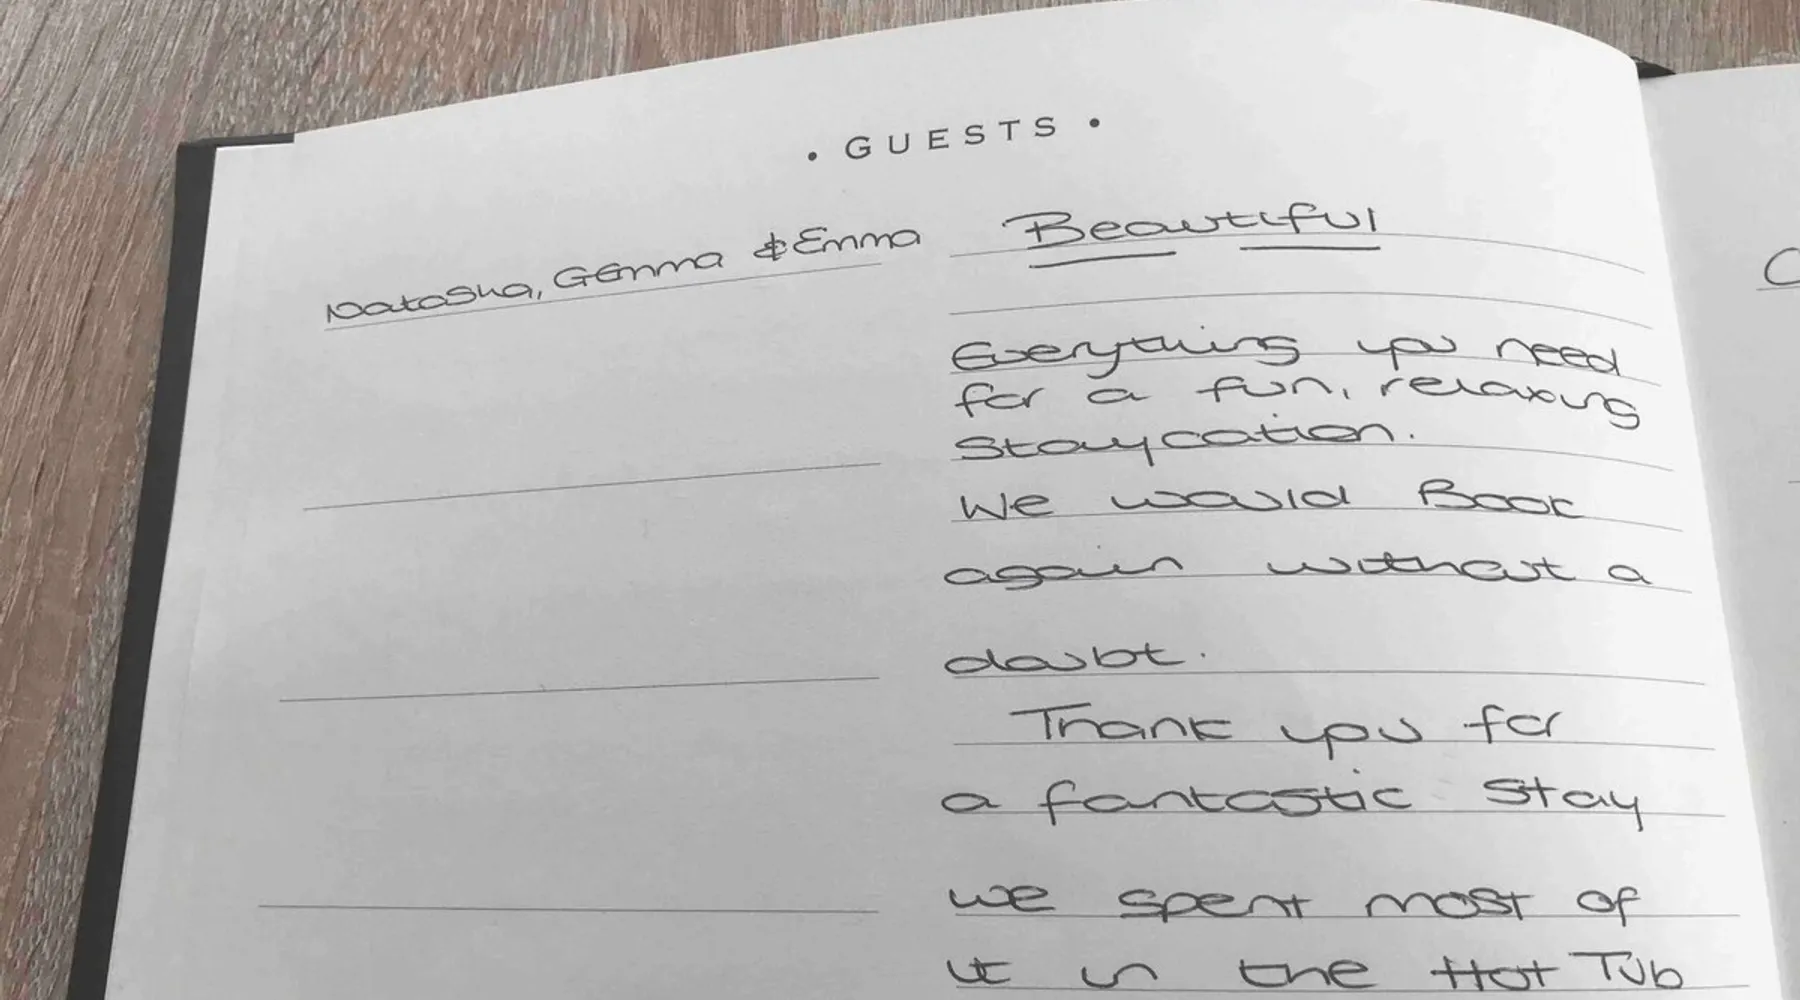 • GUESTS •
Natasha, Gemma & Emma
Beautiful
Everything you need
for a fun, relaxing
Staycation.
We would Book
again without a
doubt.
Thank you for
a fantastic stay
we spent most of
it in the Hot Tub